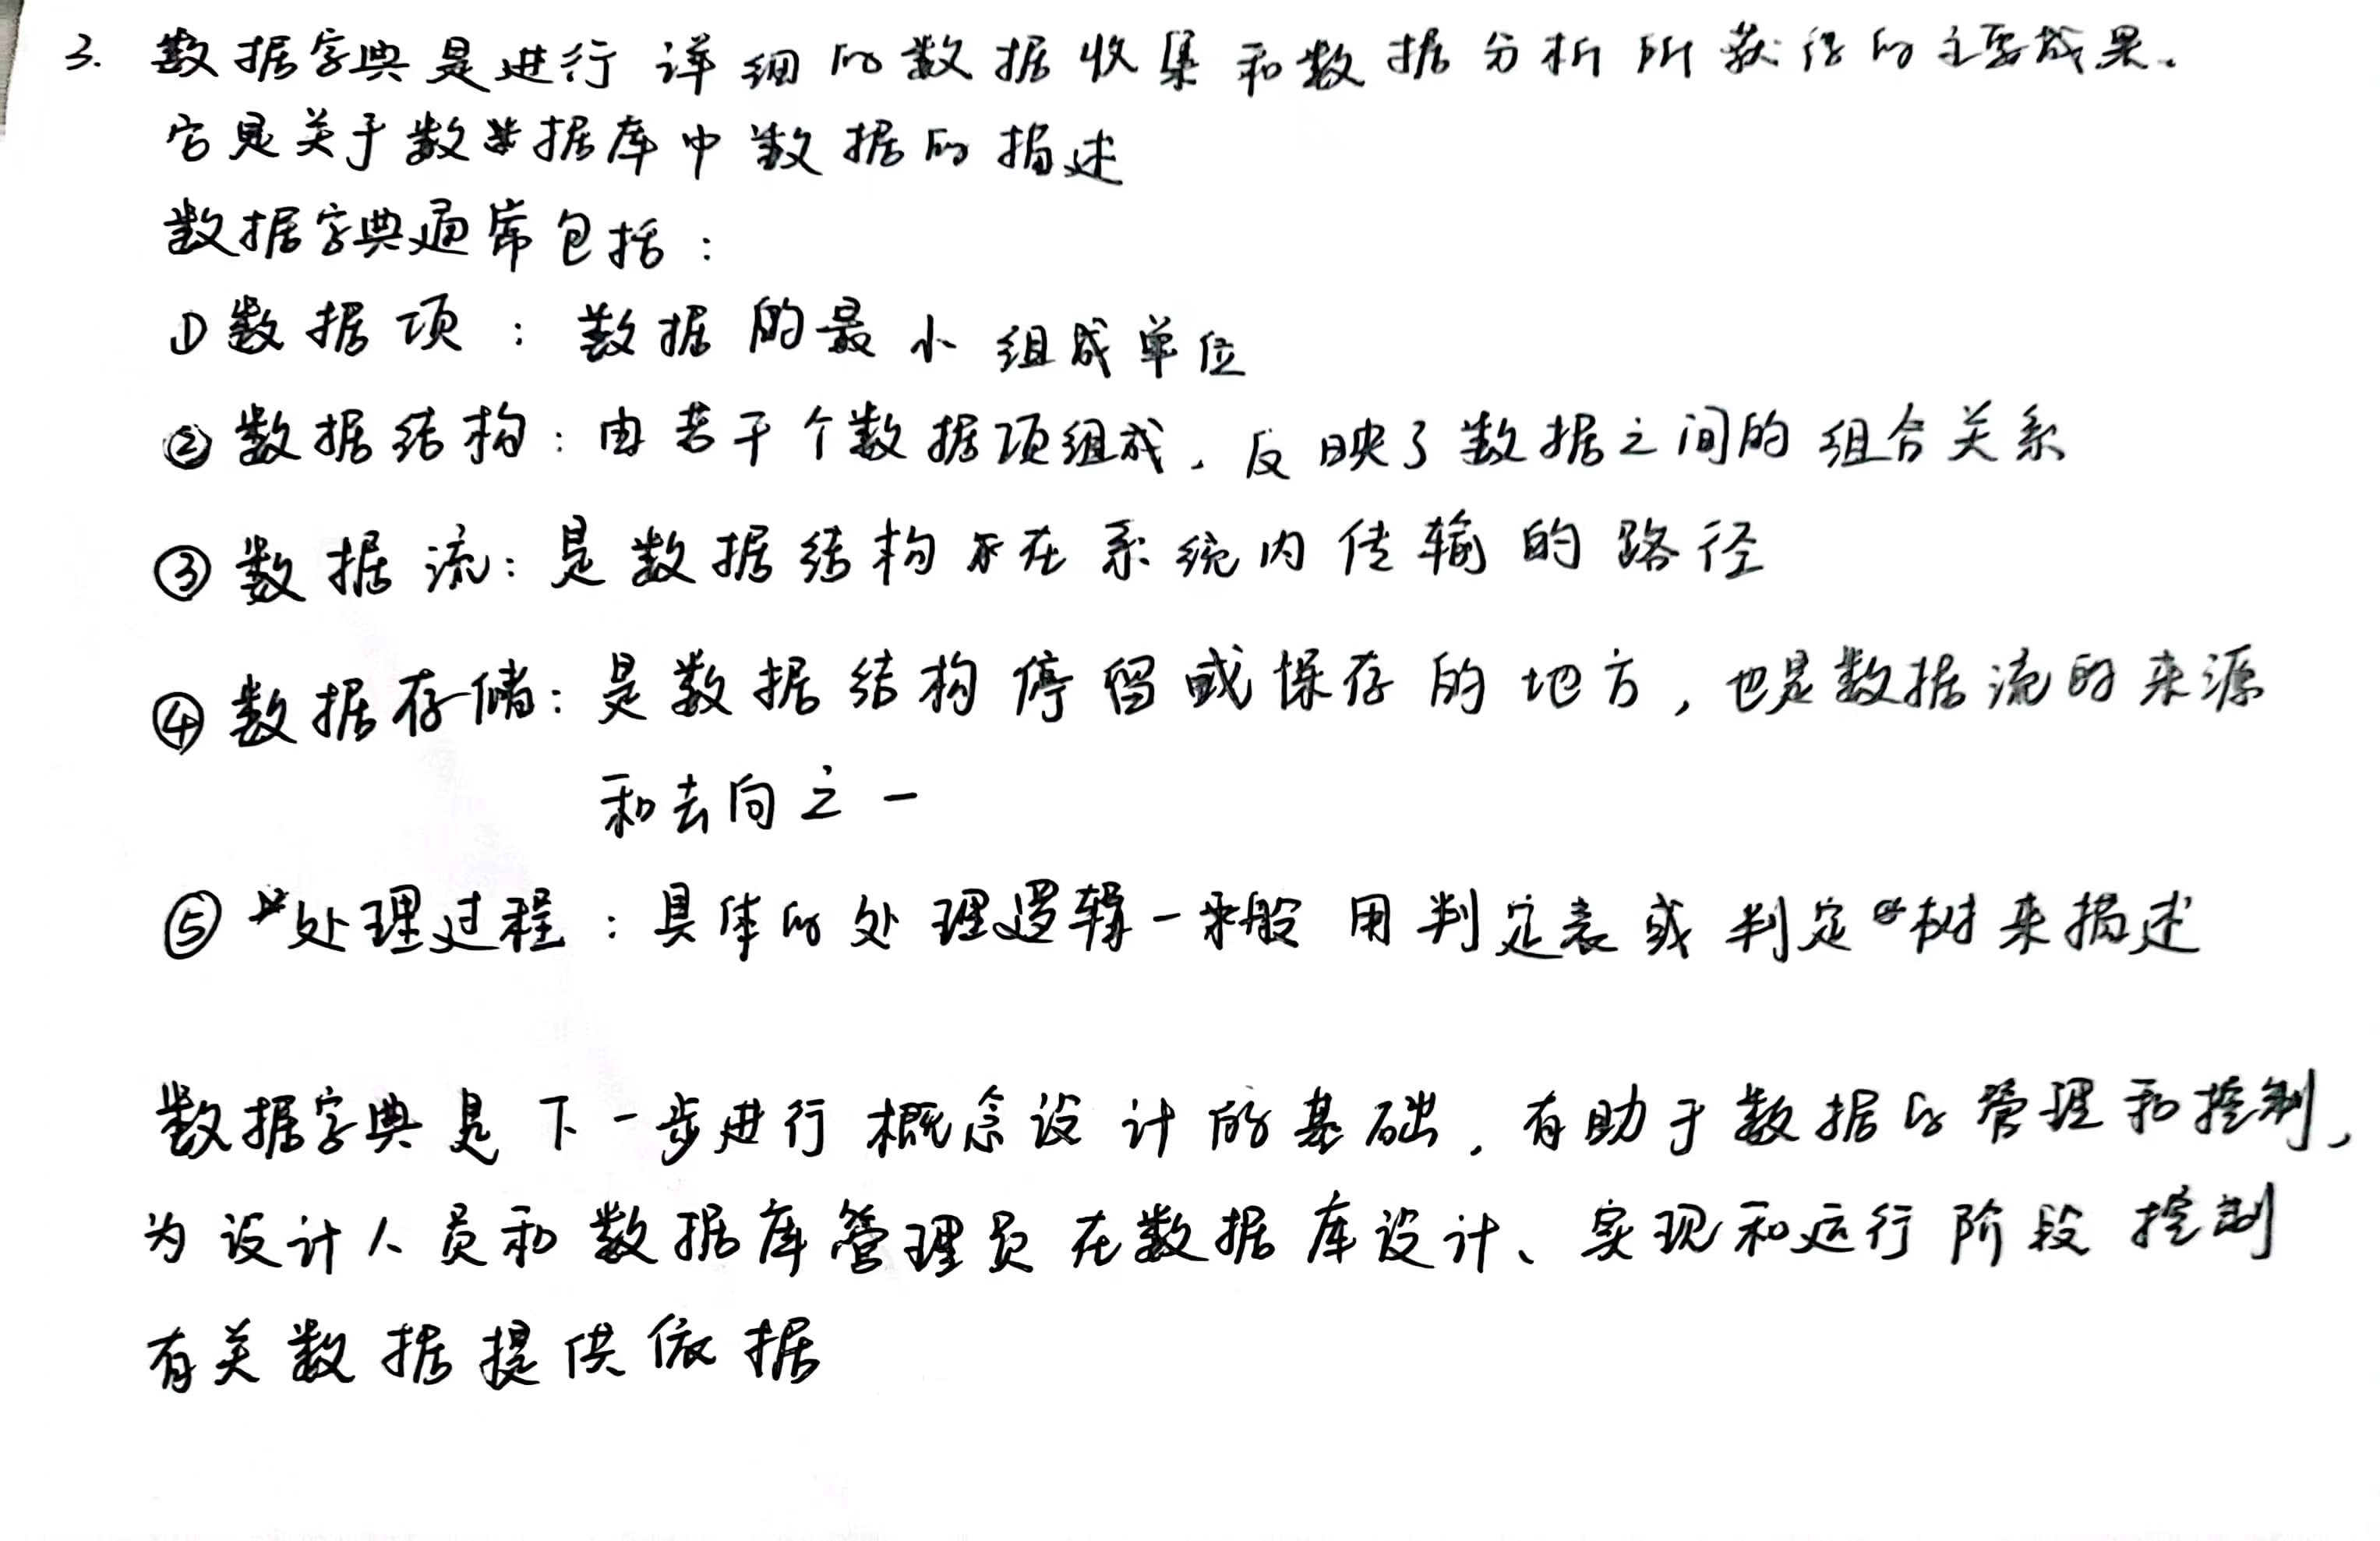 3. 数据字典是进行详细的数据收集和数据分析所获得的主要成果。
它是关于数据库中数据的描述
数据字典通常包括：
①数据项：数据的最小组成单位
②数据结构：由若干个数据项组成，反映了数据之间的组合关系
③数据流：是数据结构在系统内传输的路径
④数据存储：是数据结构停留或保存的地方，也是数据流的来源
和去向之一
⑤处理过程：具体的处理逻辑一般用判定表或判定树来描述
数据字典是下一步进行概念设计的基础，有助于数据的管理和控制，
为设计人员和数据库管理员在数据库设计、实现和运行阶段控制
有关数据提供依据